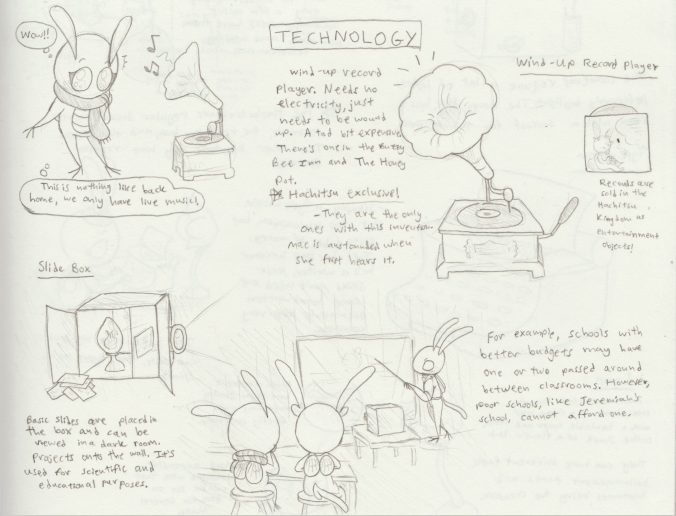 TECHNOLOGY
Wow!!
This is nothing like back
home, we only have live music!
wind-up record
player. Needs no
electricity, just
needs to be wound
up. A tad bit expensive.
There's one in the Buzzy
Bee Inn and The Honey
Pot.
Hachitsu exclusive!
- They are the only
ones with this invention.
Mac is astounded when
she first hears it.
Wind-Up Record Player
Records are
sold in the
Hachitsu
Kingdom as
entertainment
objects!
Slide Box
Basic slides are placed in
the box and can be
viewed in a dark room.
Projects onto the wall. It's
used for scientific and
educational purposes.
For example, schools with
better budgets may have
one or two passed around
between classrooms. However,
poor schools, like Jeremiah's
school, cannot afford one.